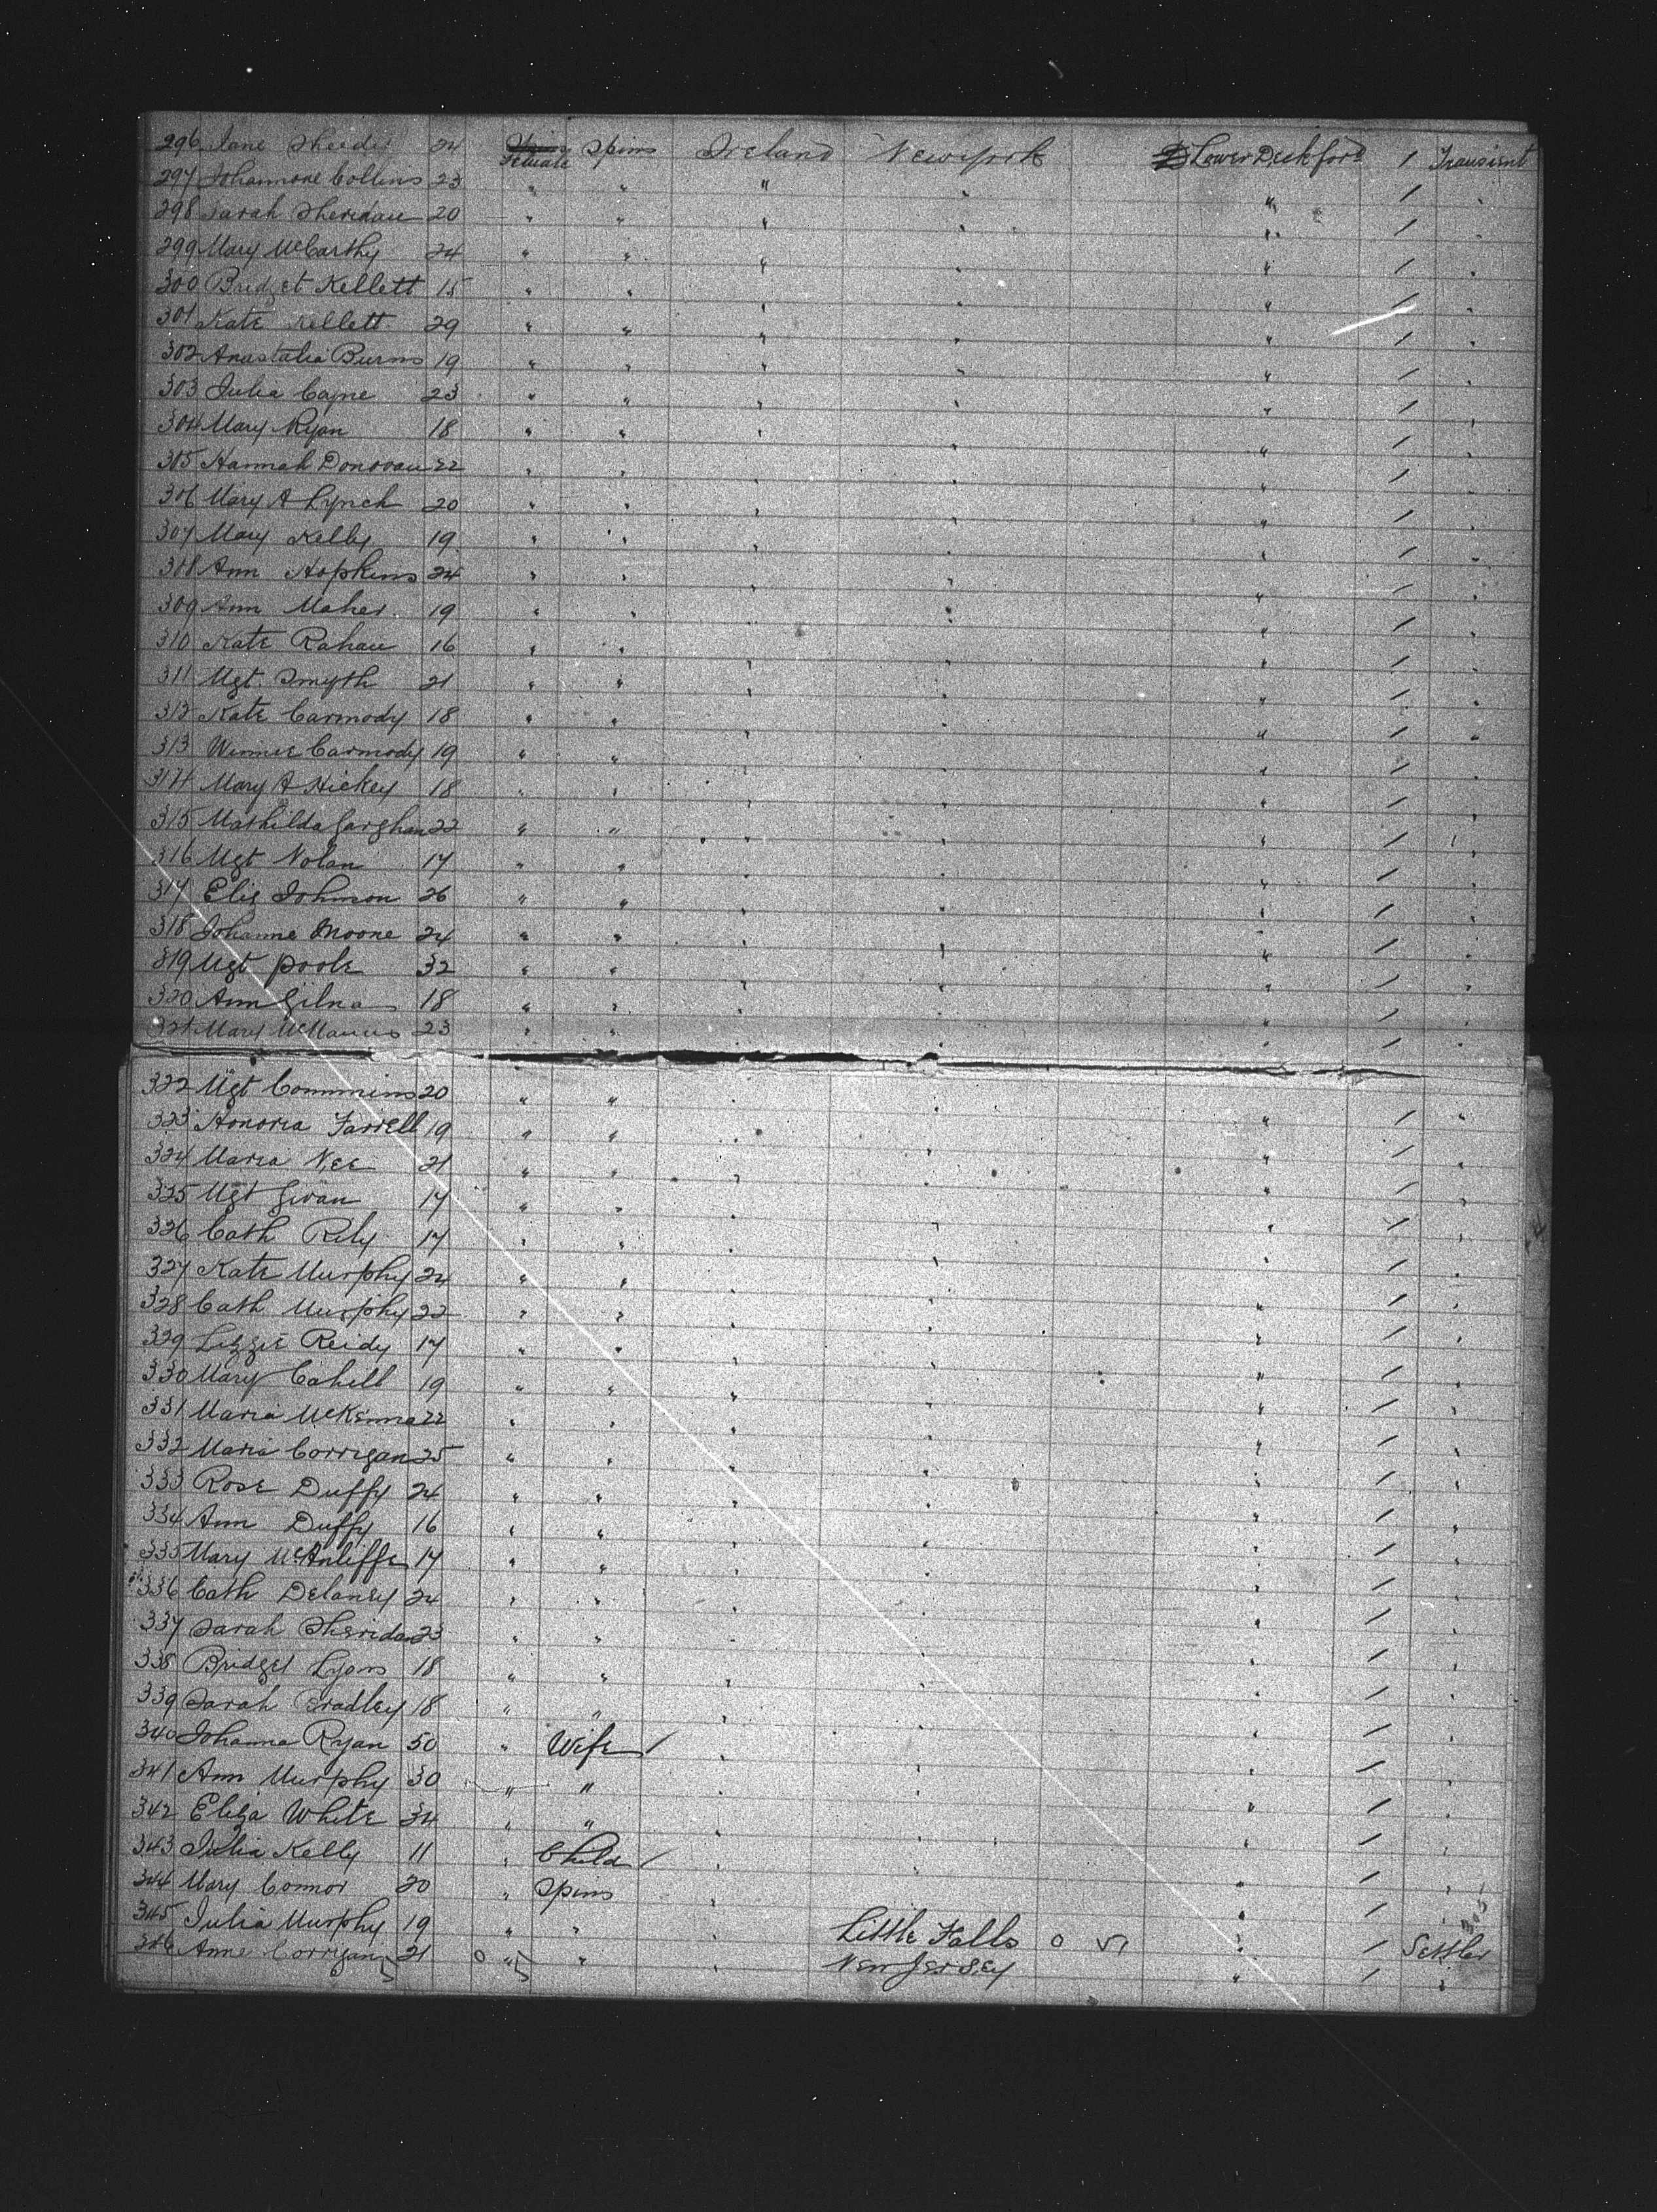 296 Jane 24 Female Spins Ireland New York Lower Deck ford 1 Transient
297 Johannone Collins 23 " " " " " 1 "
298 Sarah Sheridan 20 " " " " " 1 "
299 Mary McCarthy 24 " " " " " 1 "
300 Bridget Kellett 15 " " " " " 1 "
301 Kate Kellett 29 " " " " " 1 "
302 Anastatia Burns 19 " " " " " 1 "
303 Julia Cagne 23 " " " " " 1 "
304 Mary Ryan 18 " " " " " 1 "
305 Hannah Donovan 22 " " " " " 1 "
306 Mary A Lynch 20 " " " " " 1 "
307 Mary Kelly 19 " " " " " 1 "
308 Ann Hopkins 24 " " " " " 1 "
309 Ann Maher 19 " " " " " 1 "
310 Kate Rahan 16 " " " " " 1 "
311 Mgt. Smyth 21 " " " " " 1 "
312 Kate Carmody 18 " " " " " 1 "
313 Winnie Carmody 19 " " " " " 1 "
314 Mary A Hickey 18 " " " " " 1 "
315 Mathilda Garghan 22 " " " " " 1 "
316 Mgt Nolan 17 " " " " " 1 "
317 Eliz Johnson 26 " " " " " 1 "
318 Johanne Moone 24 " " " " " 1 "
319 Mgt Poole 32 " " " " " 1 "
320 Ann Gilna 18 " " " " " 1 "
321 Mary McManus 23 " " " " " 1 "
322 Mgt Commins 20 " " " " " 1 "
323 Honoria Farrell 19 " " " " " 1 "
324 Maria Nee 21 " " " " " 1 "
325 Mgt Givan 17 " " " " " 1 "
326 Cath Rily 17 " " " " " 1 "
327 Kate Murphy 24 " " " " " 1 "
328 Cath Murphy 22 " " " " " 1 "
329 Lizzie Reidy 17 " " " " " 1 "
330 Mary Cahill 19 " " " " " 1 "
331 Maria McKenna 22 " " " " " 1 "
332 Maria Corrigan 25 " " " " " 1 "
333 Rose Duffy 24 " " " " " 1 "
334 Ann Duffy 16 " " " " " 1 "
335 Mary McAnliffe 17 " " " " " 1 "
336 Cath Delaney 24 " " " " " 1 "
337 Sarah Sheridan 23 " " " " " 1 "
338 Bridget Lyons 18 " " " " " 1 "
339 Sarah Bradley 18 " " " " " 1 "
340 Johanna Ryan 50 " Wife / " " " 1 "
341 Ann Murphy 30 " " " " " 1 "
342 Eliza White 34 " " " " " 1 "
343 Julia Kelly 11 " Child / " " " 1 "
344 Mary Connor 20 " Spins " " " 1 "
345 Julia Murphy 19 " " " Little Falls 0 " 1 Settler
346 Anne Corrigan 21 0 " " " New Jersey " 1 "